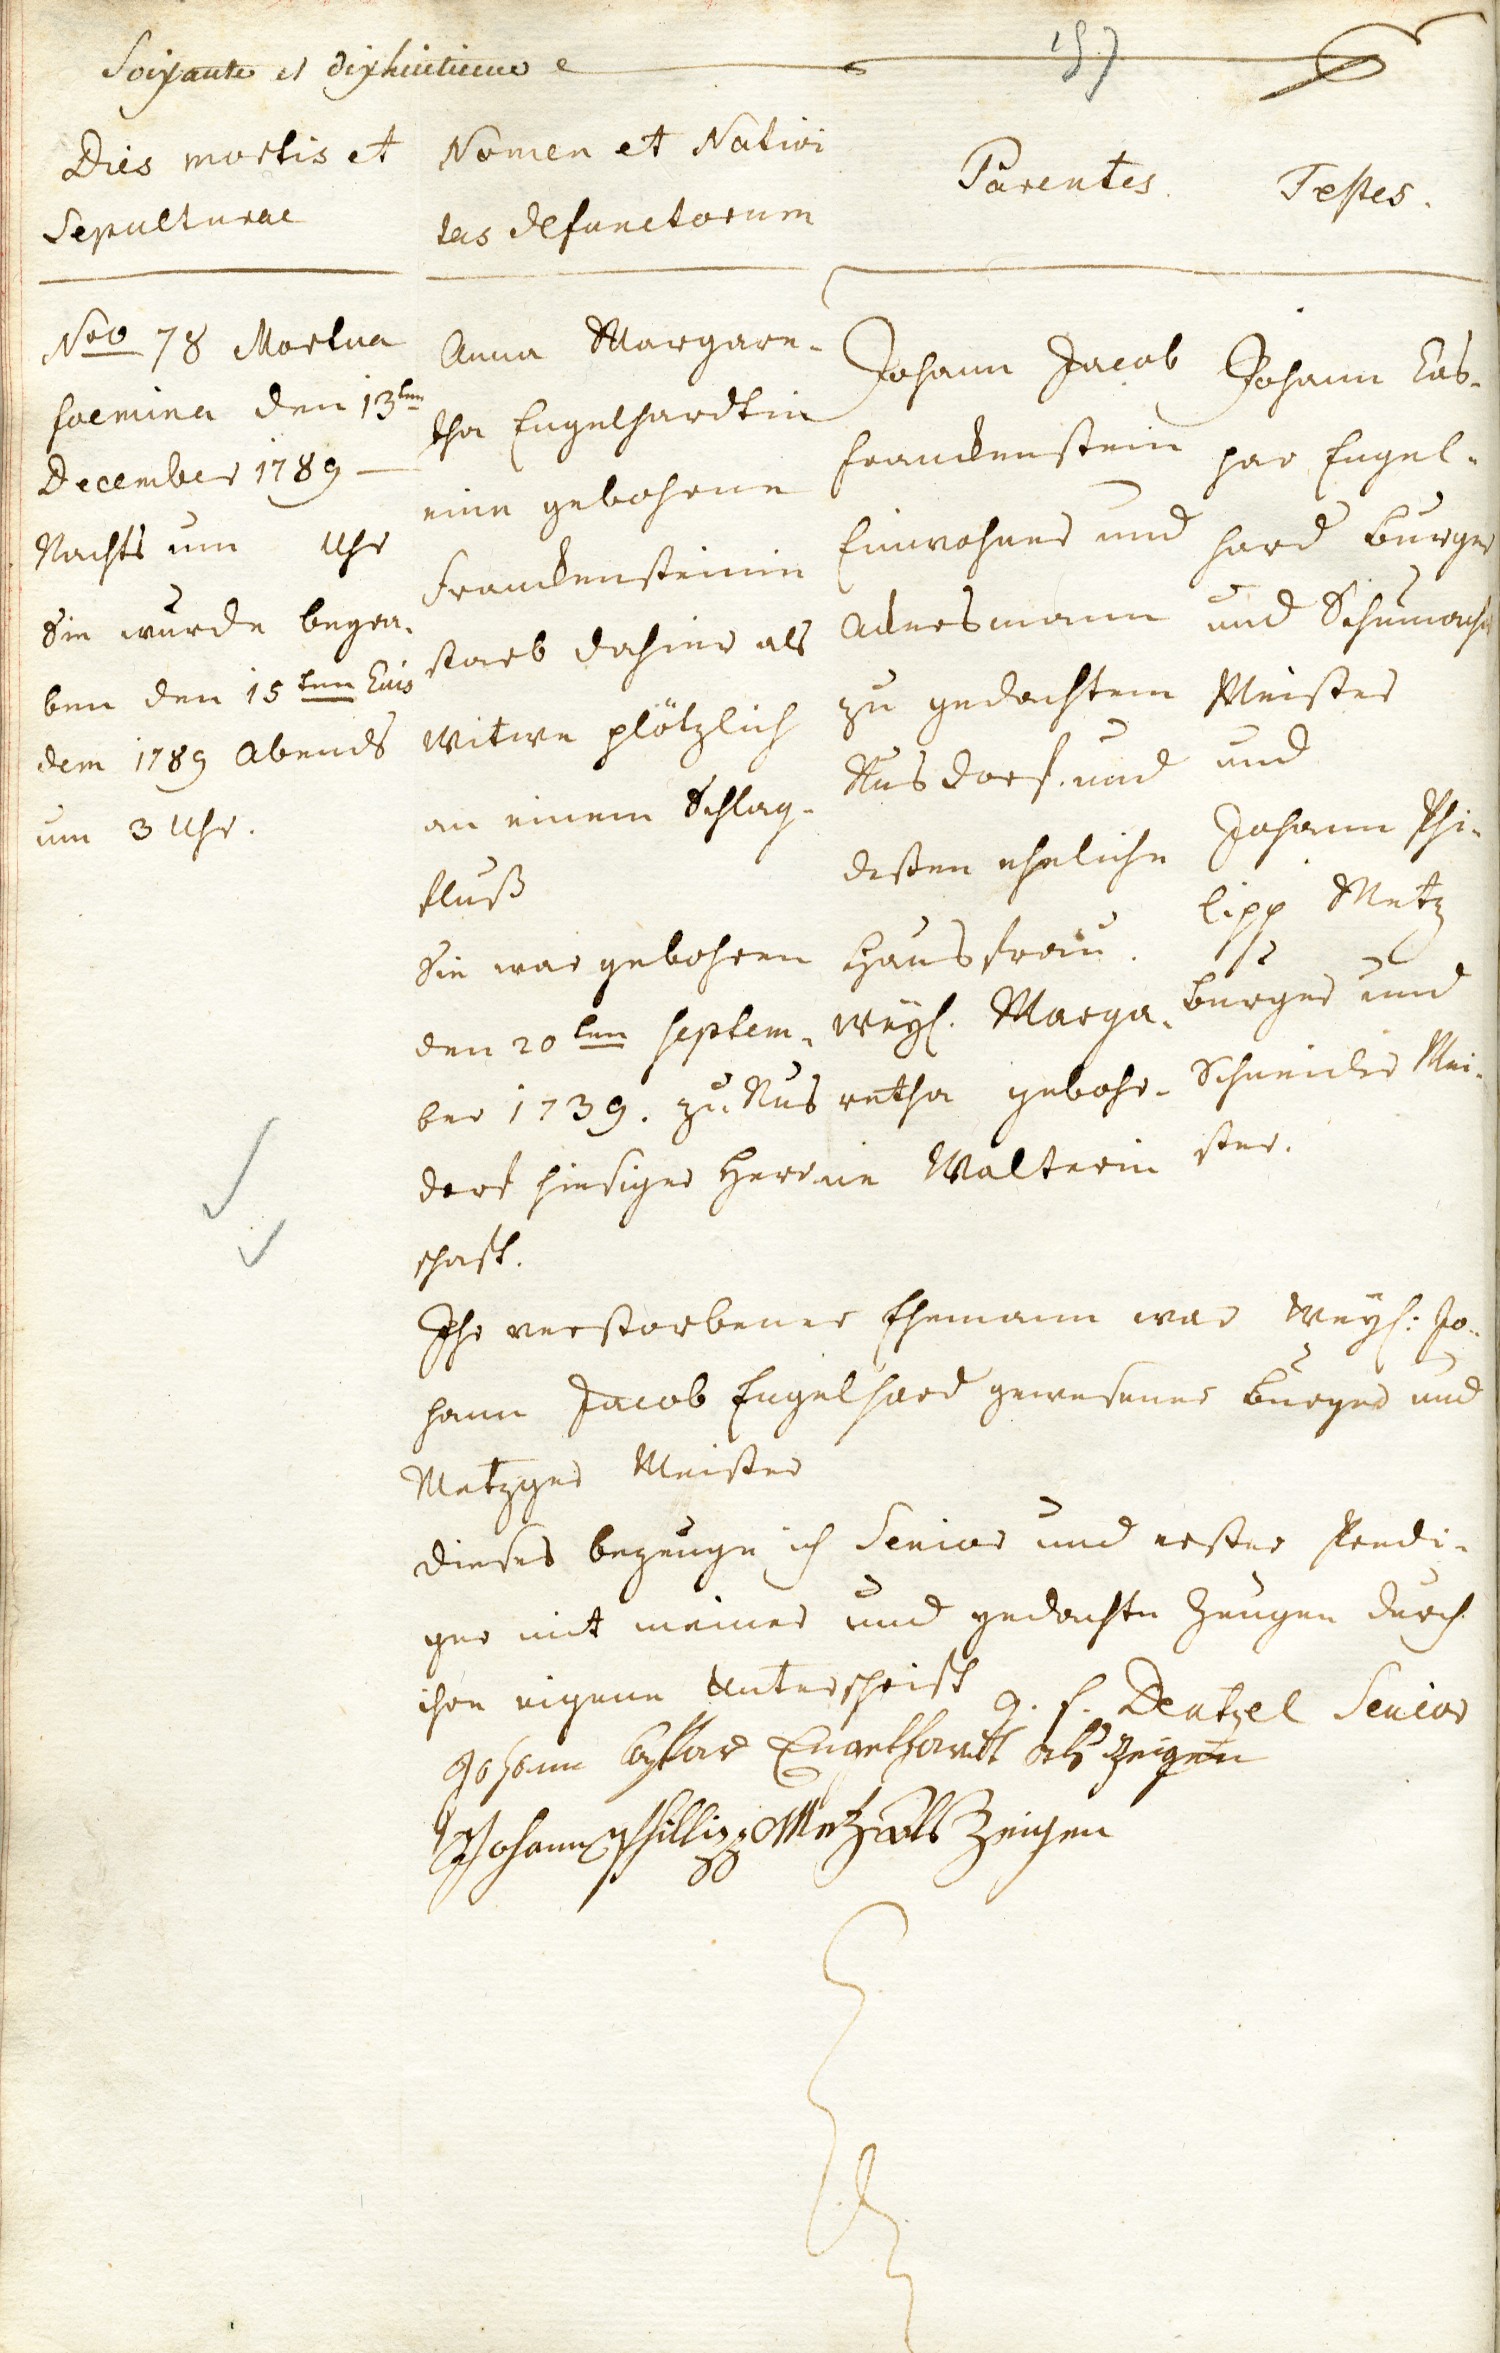 Soixante et dixhuitieme
157
Dies mortis et
Sepulturae
Nomen et Nativi
tas defunctorum
Parentes.
Testes.
Nro 78 Mortua
foemina den 13ten
December 1789 —
Nachts um Uhr
Sie wurde begra-
ben den 15ten Eius
dem 1789 Abends
um 3 Uhr.
Anna Margare-
tha Engelhardtin
eine gebohrne
Franckensteinin
starb dahier als
Witwe plötzlich
an einem Schlag-
fluß
Sie war gebohren
den 20ten Septem-
ber 1739. zu Nus
dorf hiesiger Herr
schaft.
Johann Jacob
Franckenstein
Einwohner und
Ackersmann
zu gedachtem
Nusdorf. und
dessen eheliche
Hausfrau.
Weyl. Marga-
retha gebohr-
ne Walterin
Johann Cas-
par Engel-
hard Burger
und Schumacher
Meister
und
Johann Phi-
lipp Metz
Burger und
Schneider Mei-
ster.
Ihr verstorbener Ehemann war Weyl: Jo-
hann Jacob Engelhard gewesener Burger und
Metzger Meister
dieses bezeuge ich Senior und erster Predi-
ger mit meiner und gedachte Zeugen durch
ihre eigene Unterschrift
G. F. Dentzel Senior
Johann Casbar Engelhardt als Zeigen
Johann Phillipp Metz als Zeigen